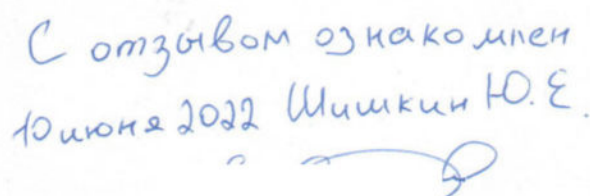 С отзывом ознакомлен
10 июня 2022 Шишкин Ю.Е.